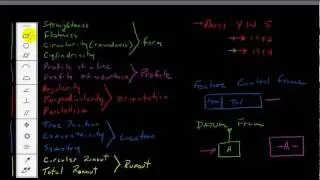 Straightness
Flatness
Circularity (roundness)
Cylindricity
Form
Profile of a line
Profile of a surface
Profile
Angularity
Perpendicularity
Parallelism
Orientation
True Position
Concentricity
Symmetry
Location
Circular Runout
Total Runout
Runout
Y14.5
Feature Control Frame
Tol
Datum Frame
A
-A-